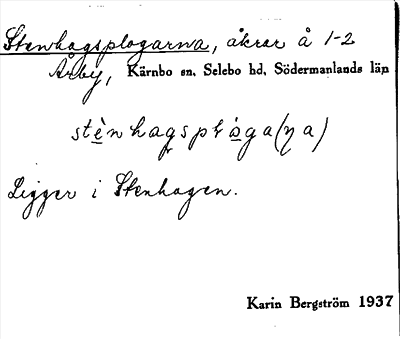 Stenhagsplogarna, åkrar å 1-2
Årby, Kärnbo sn. Selebo hd. Södermanlands län
Ligger i Stenhagen.
Karin Bergström 1937